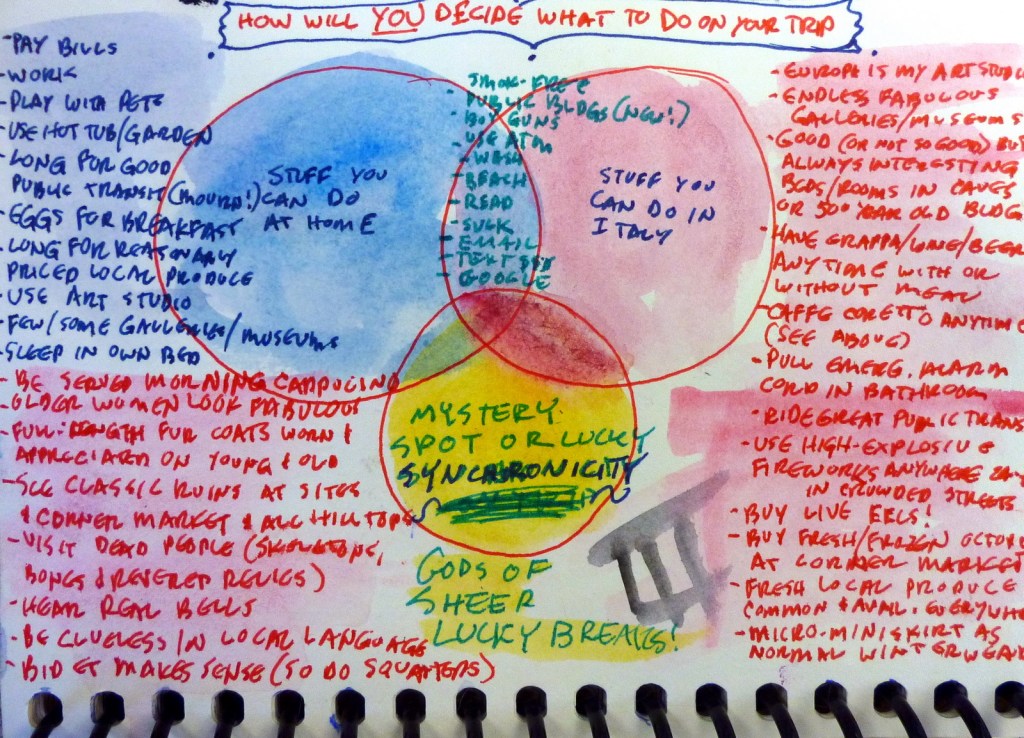 HOW WILL YOU DECIDE WHAT TO DO ON YOUR TRIP
- PAY BILLS
- WORK
- PLAY WITH PETS
- USE HOT TUB/GARDEN
- LONG FOR GOOD
PUBLIC TRANSIT (MOURN!)
- EGGS FOR BREAKFAST
- LONG FOR REASONABLY
PRICED LOCAL PRODUCE
- USE ART STUDIO
- FEW/SOME GALLERIES/MUSEUMS
- SLEEP IN OWN BED
- BE SERVED MORNING CAPPUCINO
- OLDER WOMEN LOOK FABULOUS
- FULL-LENGTH FUR COATS WORN &
APPRECIATED ON YOUNG & OLD
- SEE CLASSIC RUINS AT SITES
& CORNER MARKET & ALL HILLTOPS
- VISIT DEAD PEOPLE (SKELETONS,
BONES & REVERED RELICS)
- HEAR REAL BELLS
- BE CLUELESS IN LOCAL LANGUAGE
- BIDET MAKES SENSE (SO DO SQUATTERS)
STUFF YOU
CAN DO
AT HOME
SMOK-FREE
PUBLIC BLDGS (NEW!)
- BUY GUNS
- USE ATM
- WASH
- BEACH
- READ
- SUCK
- EMAIL
- TEXT
- GOOGLE
STUFF YOU
CAN DO IN
ITALY
MYSTERY
SPOT OR LUCKY
SYNCHRONICITY
GODS OF
SHEER
LUCKY BREAKS!
- EUROPE IS MY ART STUDIO
- ENDLESS FABULOUS
GALLERIES/MUSEUMS
- GOOD (OR NOT SO GOOD) BUT
ALWAYS INTERESTING
BEDS/ROOMS IN CAVES
OR 500 YEAR OLD BLDGS
- HAVE GRAPPA/WINE/BEER
ANYTIME WITH OR
WITHOUT MEAL
- CAFFE CORETTO ANYTIME
(SEE ABOVE)
- PULL EMERG. ALARM
CORD IN BATHROOM
- RIDE GREAT PUBLIC TRANS
- USE HIGH-EXPLOSIVE
FIREWORKS ANYWHERE
IN CROWDED STREETS
- BUY LIVE EELS!
- BUY FRESH/FROZEN OCTOP
AT CORNER MARKET
- FRESH LOCAL PRODUCE
COMMON & AVAIL. EVERYWHE
- MICRO-MINISKIRT AS
NORMAL WINTERWEAR